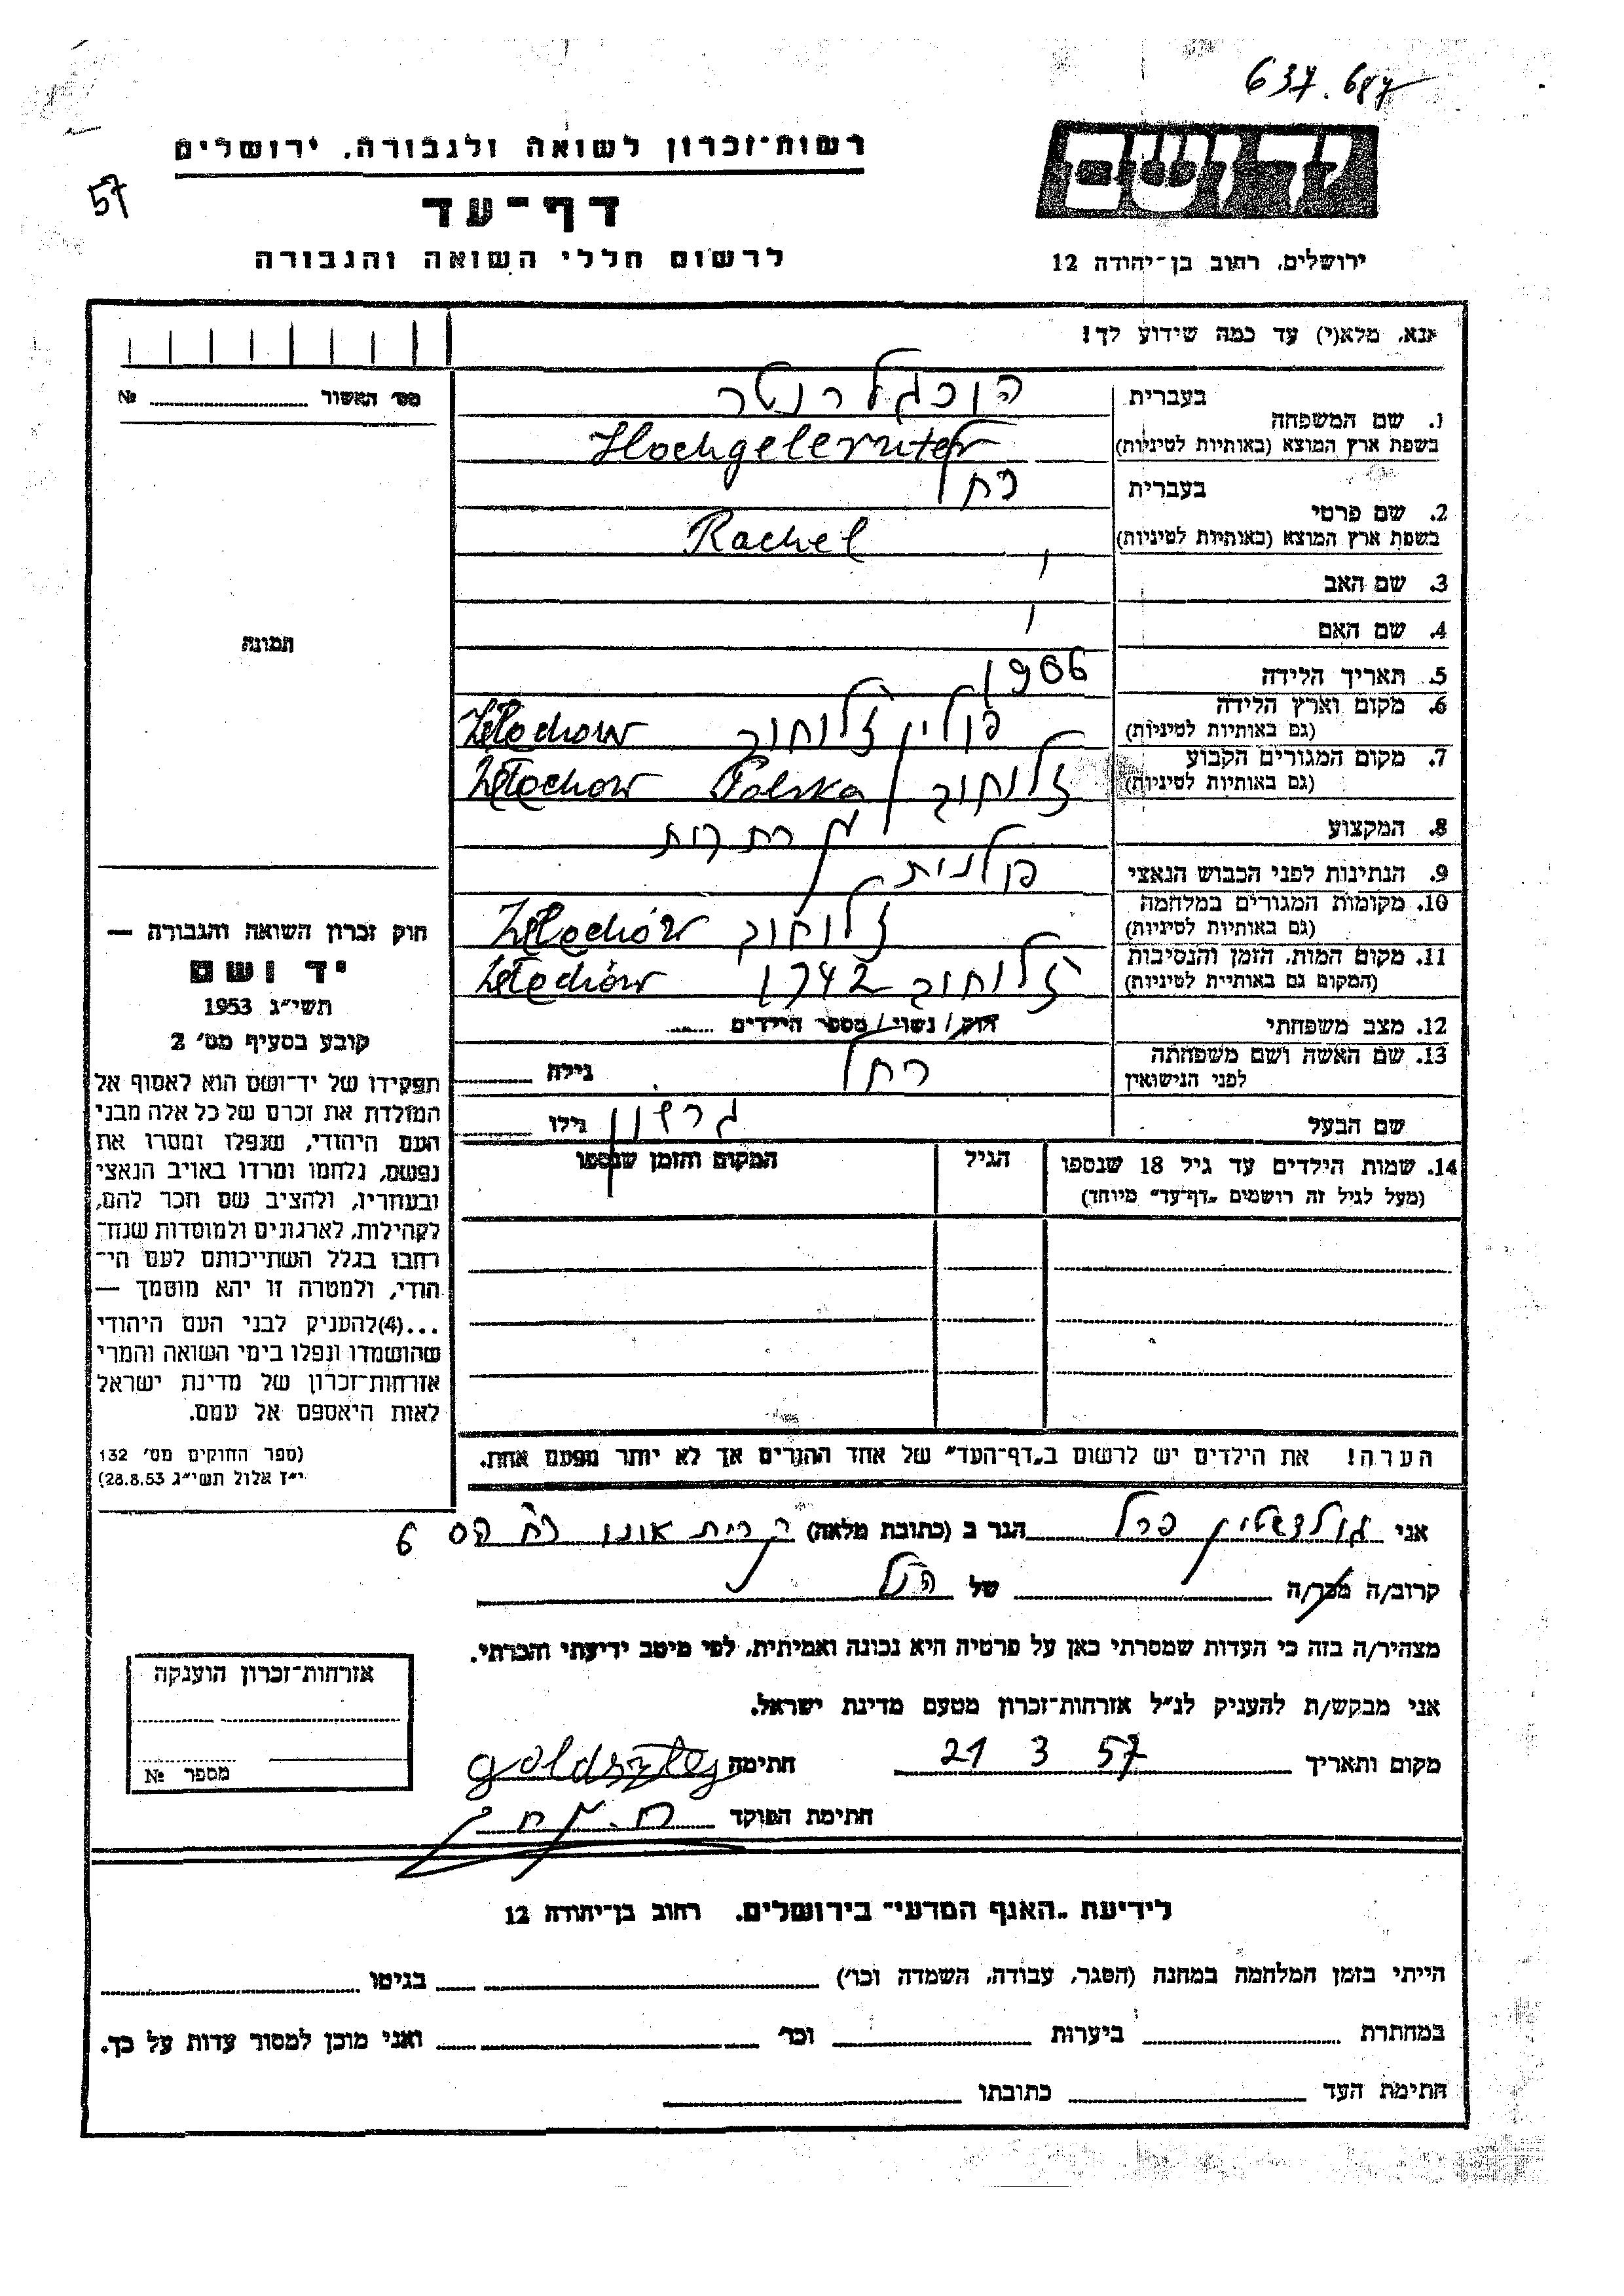 637.687
רשות־זכרון לשואה ולגבורה, ירושלים
57
יד ושם
דף־עד
לרשום חללי השואה והגבורה
ירושלים, רחוב בן־יהודה 12
אנא, מלא(י) עד כמה שידוע לך!
מס׳ האשור № 
בעברית הוכגלרנטר
1. שם המשפחה
בשפת ארץ המוצא (באותיות לטיניות) Hochgelernter
בעברית רחל
2. שם פרטי
בשפת ארץ המוצא (באותיות לטיניות) Rachel
3. שם האב
4. שם האם
תמונה
5. תאריך הלידה 1906
6. מקום וארץ הלידה פולין זלוחוב
(גם באותיות לטיניות)
7. מקום המגורים הקבוע זלוחוב Polska
(גם באותיות לטיניות)
8. המקצוע
9. הנתינות לפני הכבוש הנאצי פולנית
10. מקומות המגורים במלחמה זלוחוב
(גם באותיות לטיניות)
11. מקום המות, הזמן והנסיבות זלוחוב 1942
(המקום גם באותיות לטיניות)
12. מצב משפחתי רווק / נשוי / מספר הילדים
13. שם האשה ושם משפחתה רחל גילה
לפני הנישואין
שם הבעל גרשון גילו
14. שמות הילדים עד גיל 18 שנספו הגיל המקום והזמן שנספו
(מעל לגיל זה רושמים „דף־עד” מיוחד)
חוק זכרון השואה והגבורה —
יד ושם
תשי״ג 1953
קובע בסעיף מס׳ 2
תפקידו של יד־ושם הוא לאסוף אל
המולדת את זכרם של כל אלה מבני
העם היהודי, שנפלו ומסרו את
נפשם, נלחמו ומרדו באויב הנאצי
ובעוזריו, ולהציב שם וזכר להם,
לקהילות, לארגונים ולמוסדות שנח־
רבו בגלל השתייכותם לעם הי־
הודי, ולמטרה זו יהא מוסמך —
...(4) להעניק לבני העם היהודי
שהושמדו ונפלו בימי השואה והמרי
אזרחות־זכרון של מדינת ישראל
לאות היאספם אל עמם.
(ספר החוקים מס׳ 132
י״ז אלול תשי״ג 28.8.53)
הערה! את הילדים יש לרשום ב„דף־העד” של אחד ההורים אך לא יותר מפעם אחת.
אני גולדשטין פרל הגר ב (כתובת מלאה) קרית אונו 6
קרוב/ה מכר/ה של הנ״ל
מצהיר/ה בזה כי העדות שמסרתי כאן על פרטיה היא נכונה ואמיתית, לפי מיטב ידיעתי והכרתי.
אני מבקש/ת להעניק לנ״ל אזרחות־זכרון מטעם מדינת ישראל.
מקום ותאריך 21 3 57 חתימה
חתימת הפוקד
אזרחות־זכרון הוענקה
מספר №
לידיעת „האגף המדעי” בירושלים, רחוב בן־יהודה 12
הייתי בזמן המלחמה במחנה (הסגר, עבודה, השמדה וכו׳) בגיטו
במחתרת ביערות וכו׳ ואני מוכן למסור עדות על כך.
חתימת העד כתובתו